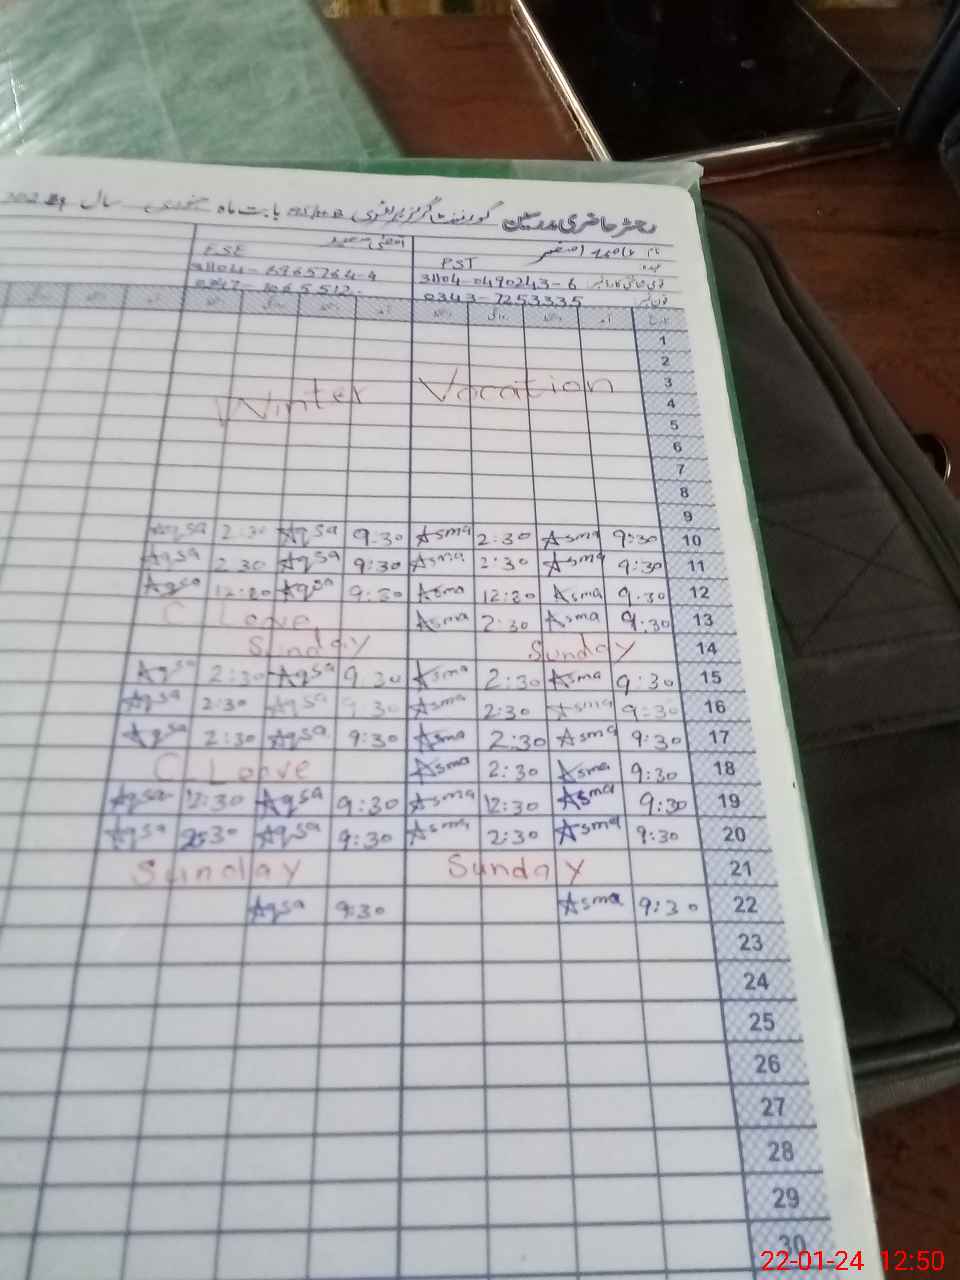 رجسٹر حاضری مدرسین گورنمنٹ گرلز پرائمری بابت ماہ جنوری سال
نام اصغر
PST ESE
31104-0490243-6
0343-7253335
1
2
3 Winter Vocation
4
5
6
7
8
9
10 9:30 Asma 2:30 Asma 9:30 Aqsa 2:30 Aqsa
11 9:30 Asma 2:30 Asma 9:30 Aqsa 2:30 Aqsa
12 9:30 Asma 12:30 Asma 9:30 Aqsa 12:30 Aqsa
13 9:30 Asma 2:30 Asma C Leave
14 Sunday Sunday
15 9:30 Asma 2:30 Asma 9:30 Aqsa 2:30 Aqsa
16 9:30 Asma 2:30 Asma 9:30 Aqsa 2:30 Aqsa
17 9:30 Asma 2:30 Asma 9:30 Aqsa 2:30 Aqsa
18 9:30 Asma 2:30 Asma C Leave
19 9:30 Asma 12:30 Asma 9:30 Aqsa 12:30 Aqsa
20 9:30 Asma 2:30 Asma 9:30 Aqsa 2:30 Aqsa
21 Sunday Sunday
22 9:30 Asma 9:30 Aqsa
23
24
25
26
27
28
29
30
22-01-24 12:50